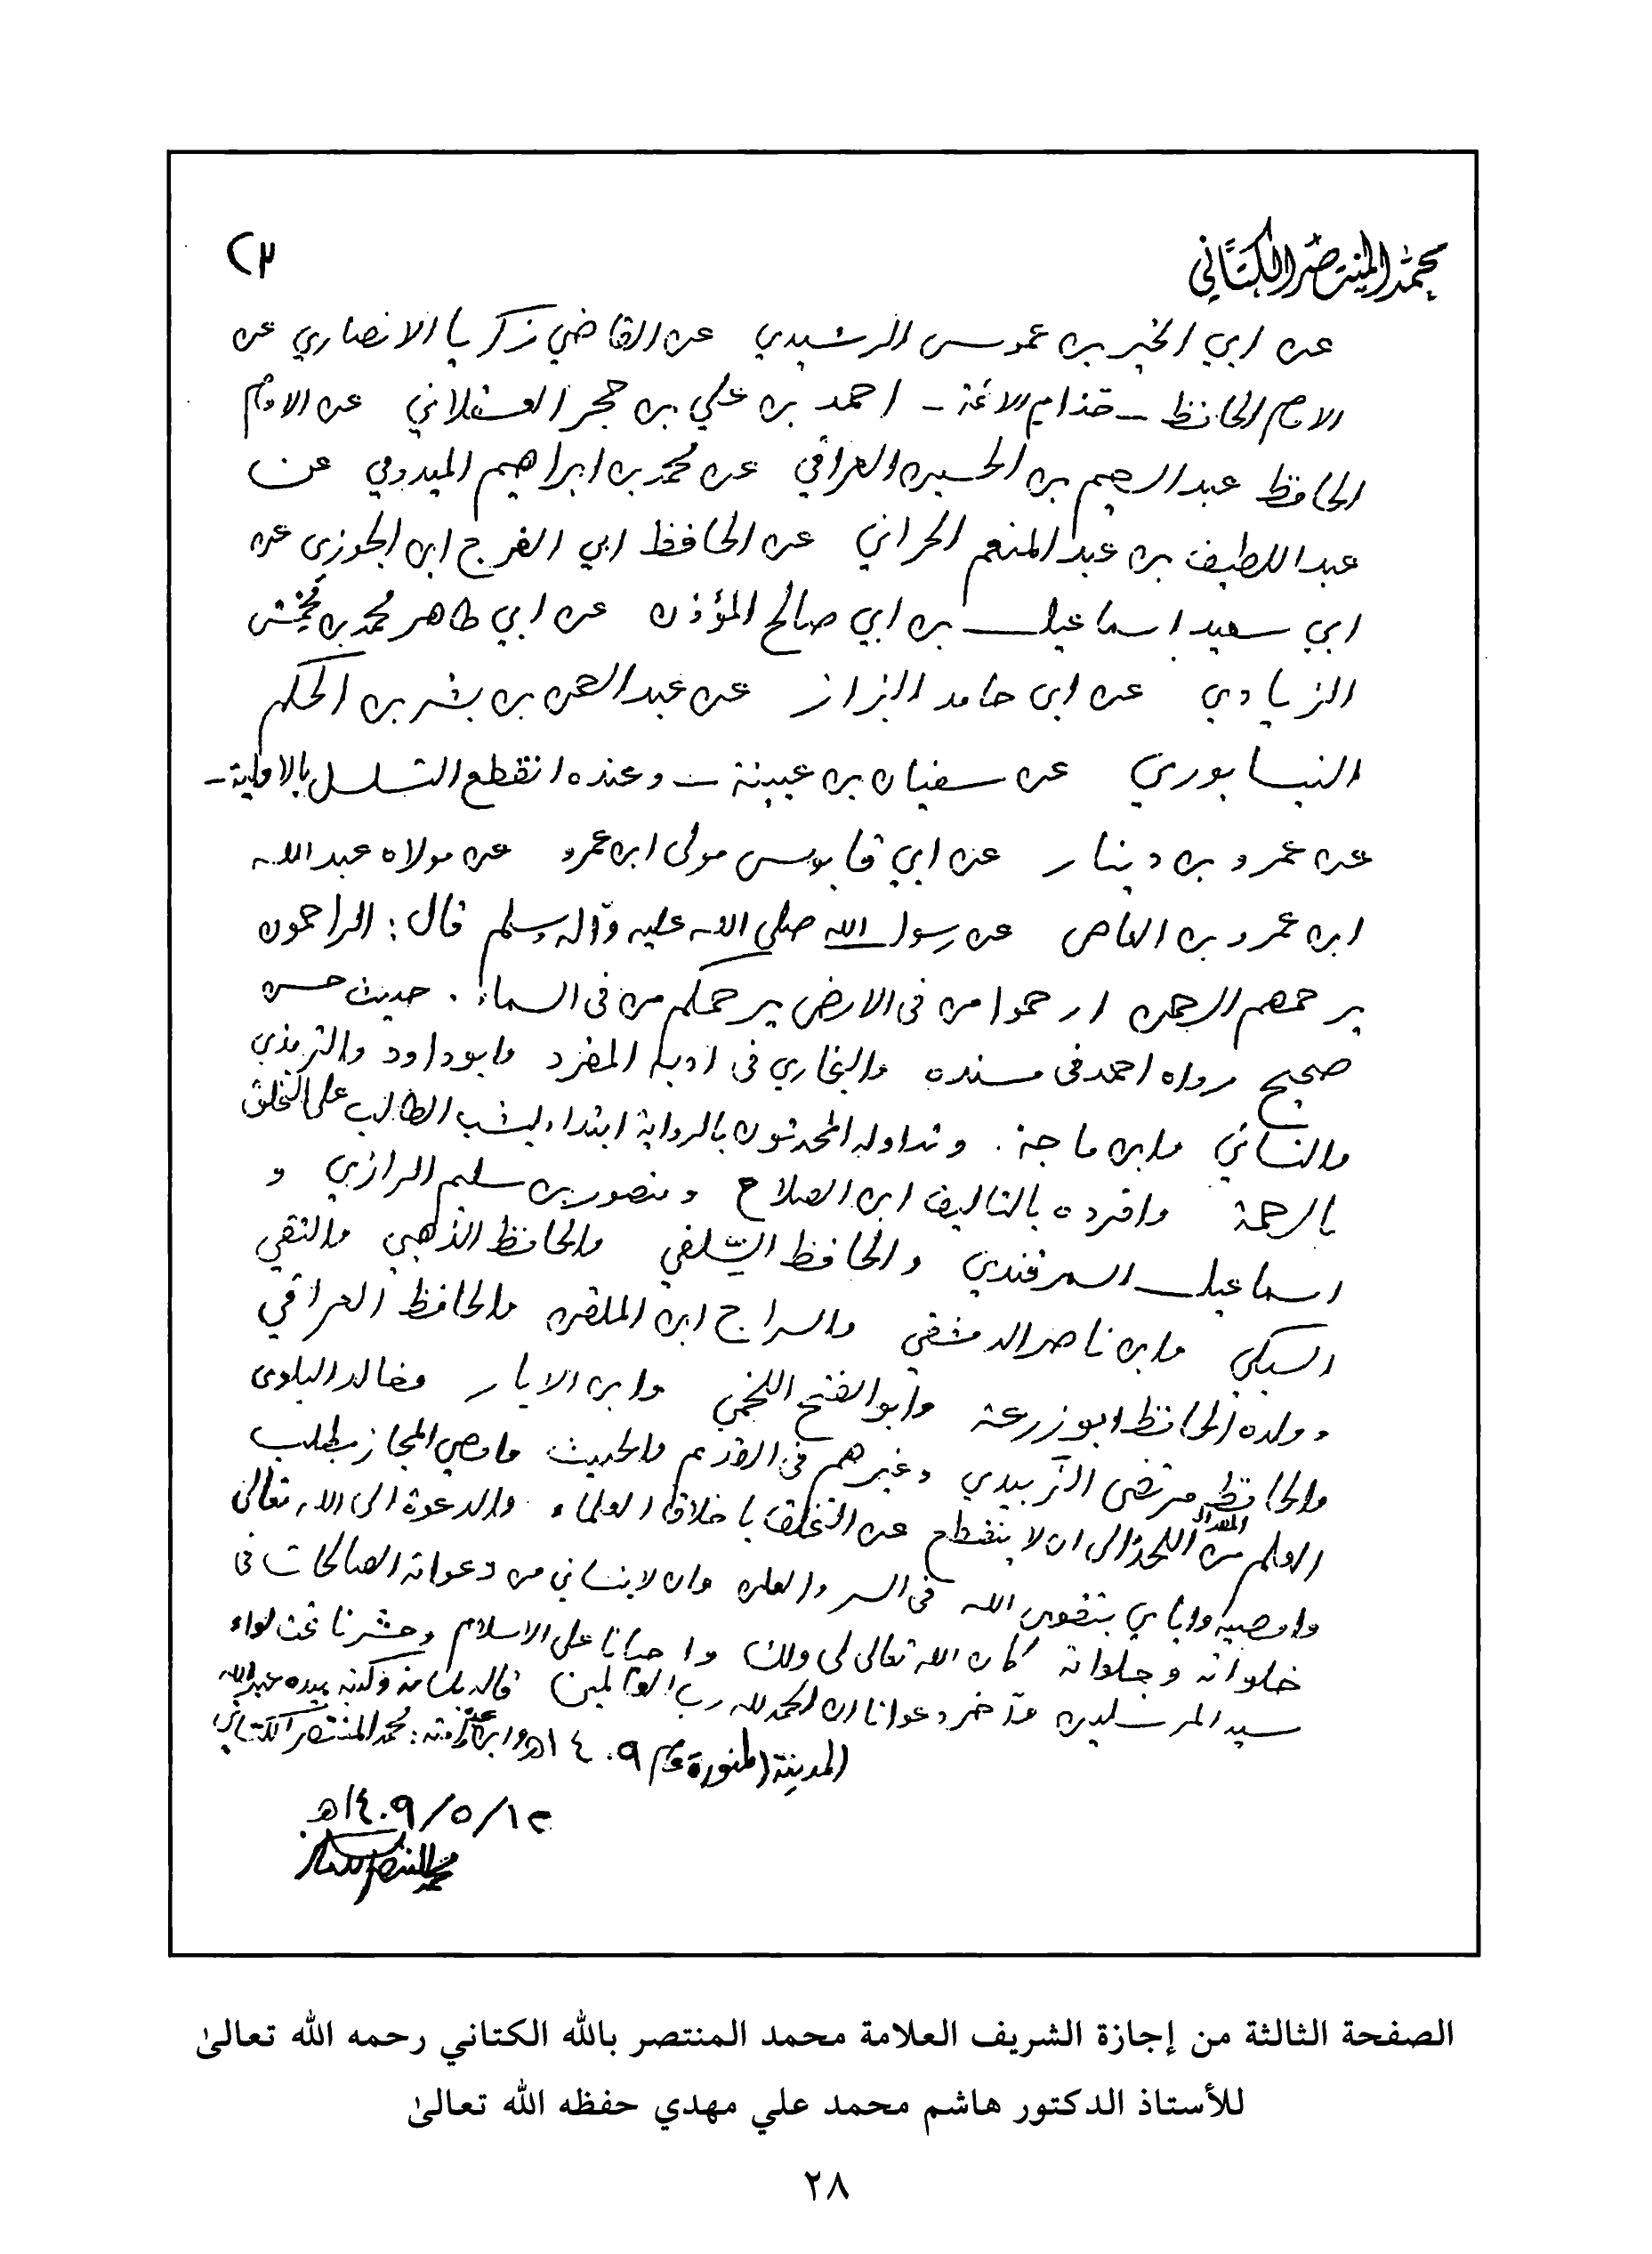 محمد المنتصر الكتاني
٣)
عن ابي الخير بن عموس الرشيدي عن القاضي زكريا الانصاري عن
الامام الحافظ – حذام الائمة – احمد بن علي بن حجر العسقلاني عن الامام
الحافظ عبد الرحيم بن الحسين العراقي عن محمد بن ابراهيم الميدومي عن
عبد اللطيف بن عبد المنعم الحراني عن الحافظ ابي الفرج ابن الجوزي عن
ابي سعيد اسماعيل بن ابي صالح المؤذن عن ابي طاهر محمد بن مَحْمِش
الزيادي عن ابي حامد البزاز عن عبد الرحمن بن بشر بن الحكم
النيسابوري عن سفيان بن عيينة – وعنده انقطع التسلسل بالاولية –
عن عمرو بن دينار عن ابي قابوس مولى ابن عمرو عن مولاه عبد الله
ابن عمرو بن العاص عن رسول الله صلى الله عليه وآله وسلم قال: الراحمون
يرحمهم الرحمن ارحموا من في الارض يرحمكم من في السماء. حديث حسن
صحيح رواه احمد في مسنده والبخاري في ادبه المفرد وابوداود والترمذي
والنسائي وابن ماجة. وتداوله المحدثون بالرواية ابتداء ليشب الطالب على التخلق
بالرحمة وافرده بالتاليف ابن الصلاح ومنصور بن سليم الرازي و
اسماعيل السمرقندي والحافظ السِّلفي والحافظ الذهبي والتقي
السبكي وابن ناصر الدمشقي والسراج ابن الملقن والحافظ العراقي
وولده الحافظ ابو زرعة وأبو الفتح اللخمي وابن الابار وخالد البلوي
والحافظ مرتضى الزَّبيدي وغيرهم في القديم والحديث واوصي المجاز بطلب
العلم من المهد الى اللحد والى ان لا ينقطع عن التخلق باخلاق العلماء والدعوة الى الله تعالى
واوصيه واياي بتقوى الله في السر والعلن وان لا ينساني من دعواته الصالحات في
خلواته وجلواته كان الله تعالى لي ولك واحيانا على الاسلام وحشرنا تحت لواء
سيد المرسلين وآخر دعوانا ان الحمد لله رب العالمين قاله بلسانه وكتبه بيده عبد الله
وابن عبده وابن امته: محمد المنتصر الكتاني
المدينة المنورة عام ١٤٠٩هـ
١٢/٥/١٤٠٩هـ
محمد المنتصر الكتاني
الصفحة الثالثة من إجازة الشريف العلامة محمد المنتصر بالله الكتاني رحمه الله تعالىٰ
للأستاذ الدكتور هاشم محمد علي مهدي حفظه الله تعالىٰ
٢٨